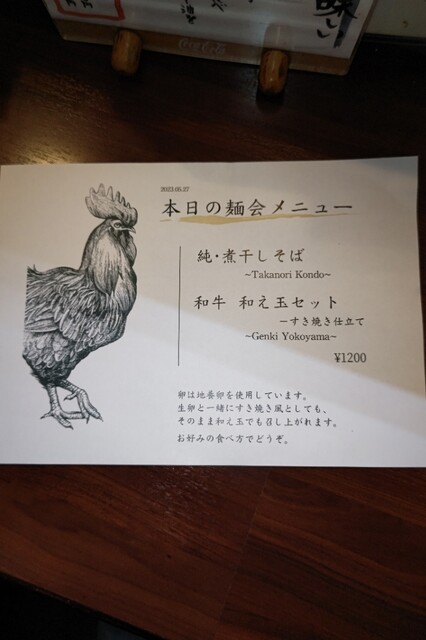 味しい
2023.05.27
本日の麺会メニュー
純・煮干しそば
~Takanori Kondo~
和牛 和え玉セット
－すき焼き仕立て
~Genki Yokoyama~
¥1200
卵は地養卵を使用しています。
生卵と一緒にすき焼き風としても、
そのまま和え玉でも召し上がれます。
お好みの食べ方でどうぞ。